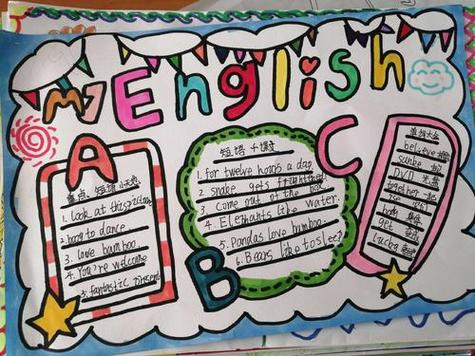 My English
A
重点 短语
1. Look at this picture
2. how to dance
3. love bamboo
4. You're welcome
5. fantastic present
B
短语
1. for twelve hours a day
2. snake gets frightened
3. Come out of the box
4. Elephants like water
5. Pandas love bamboo
6. Bears like to sleep
C
单词大全
believe
DVD 光盘
together 一起
use
both
get